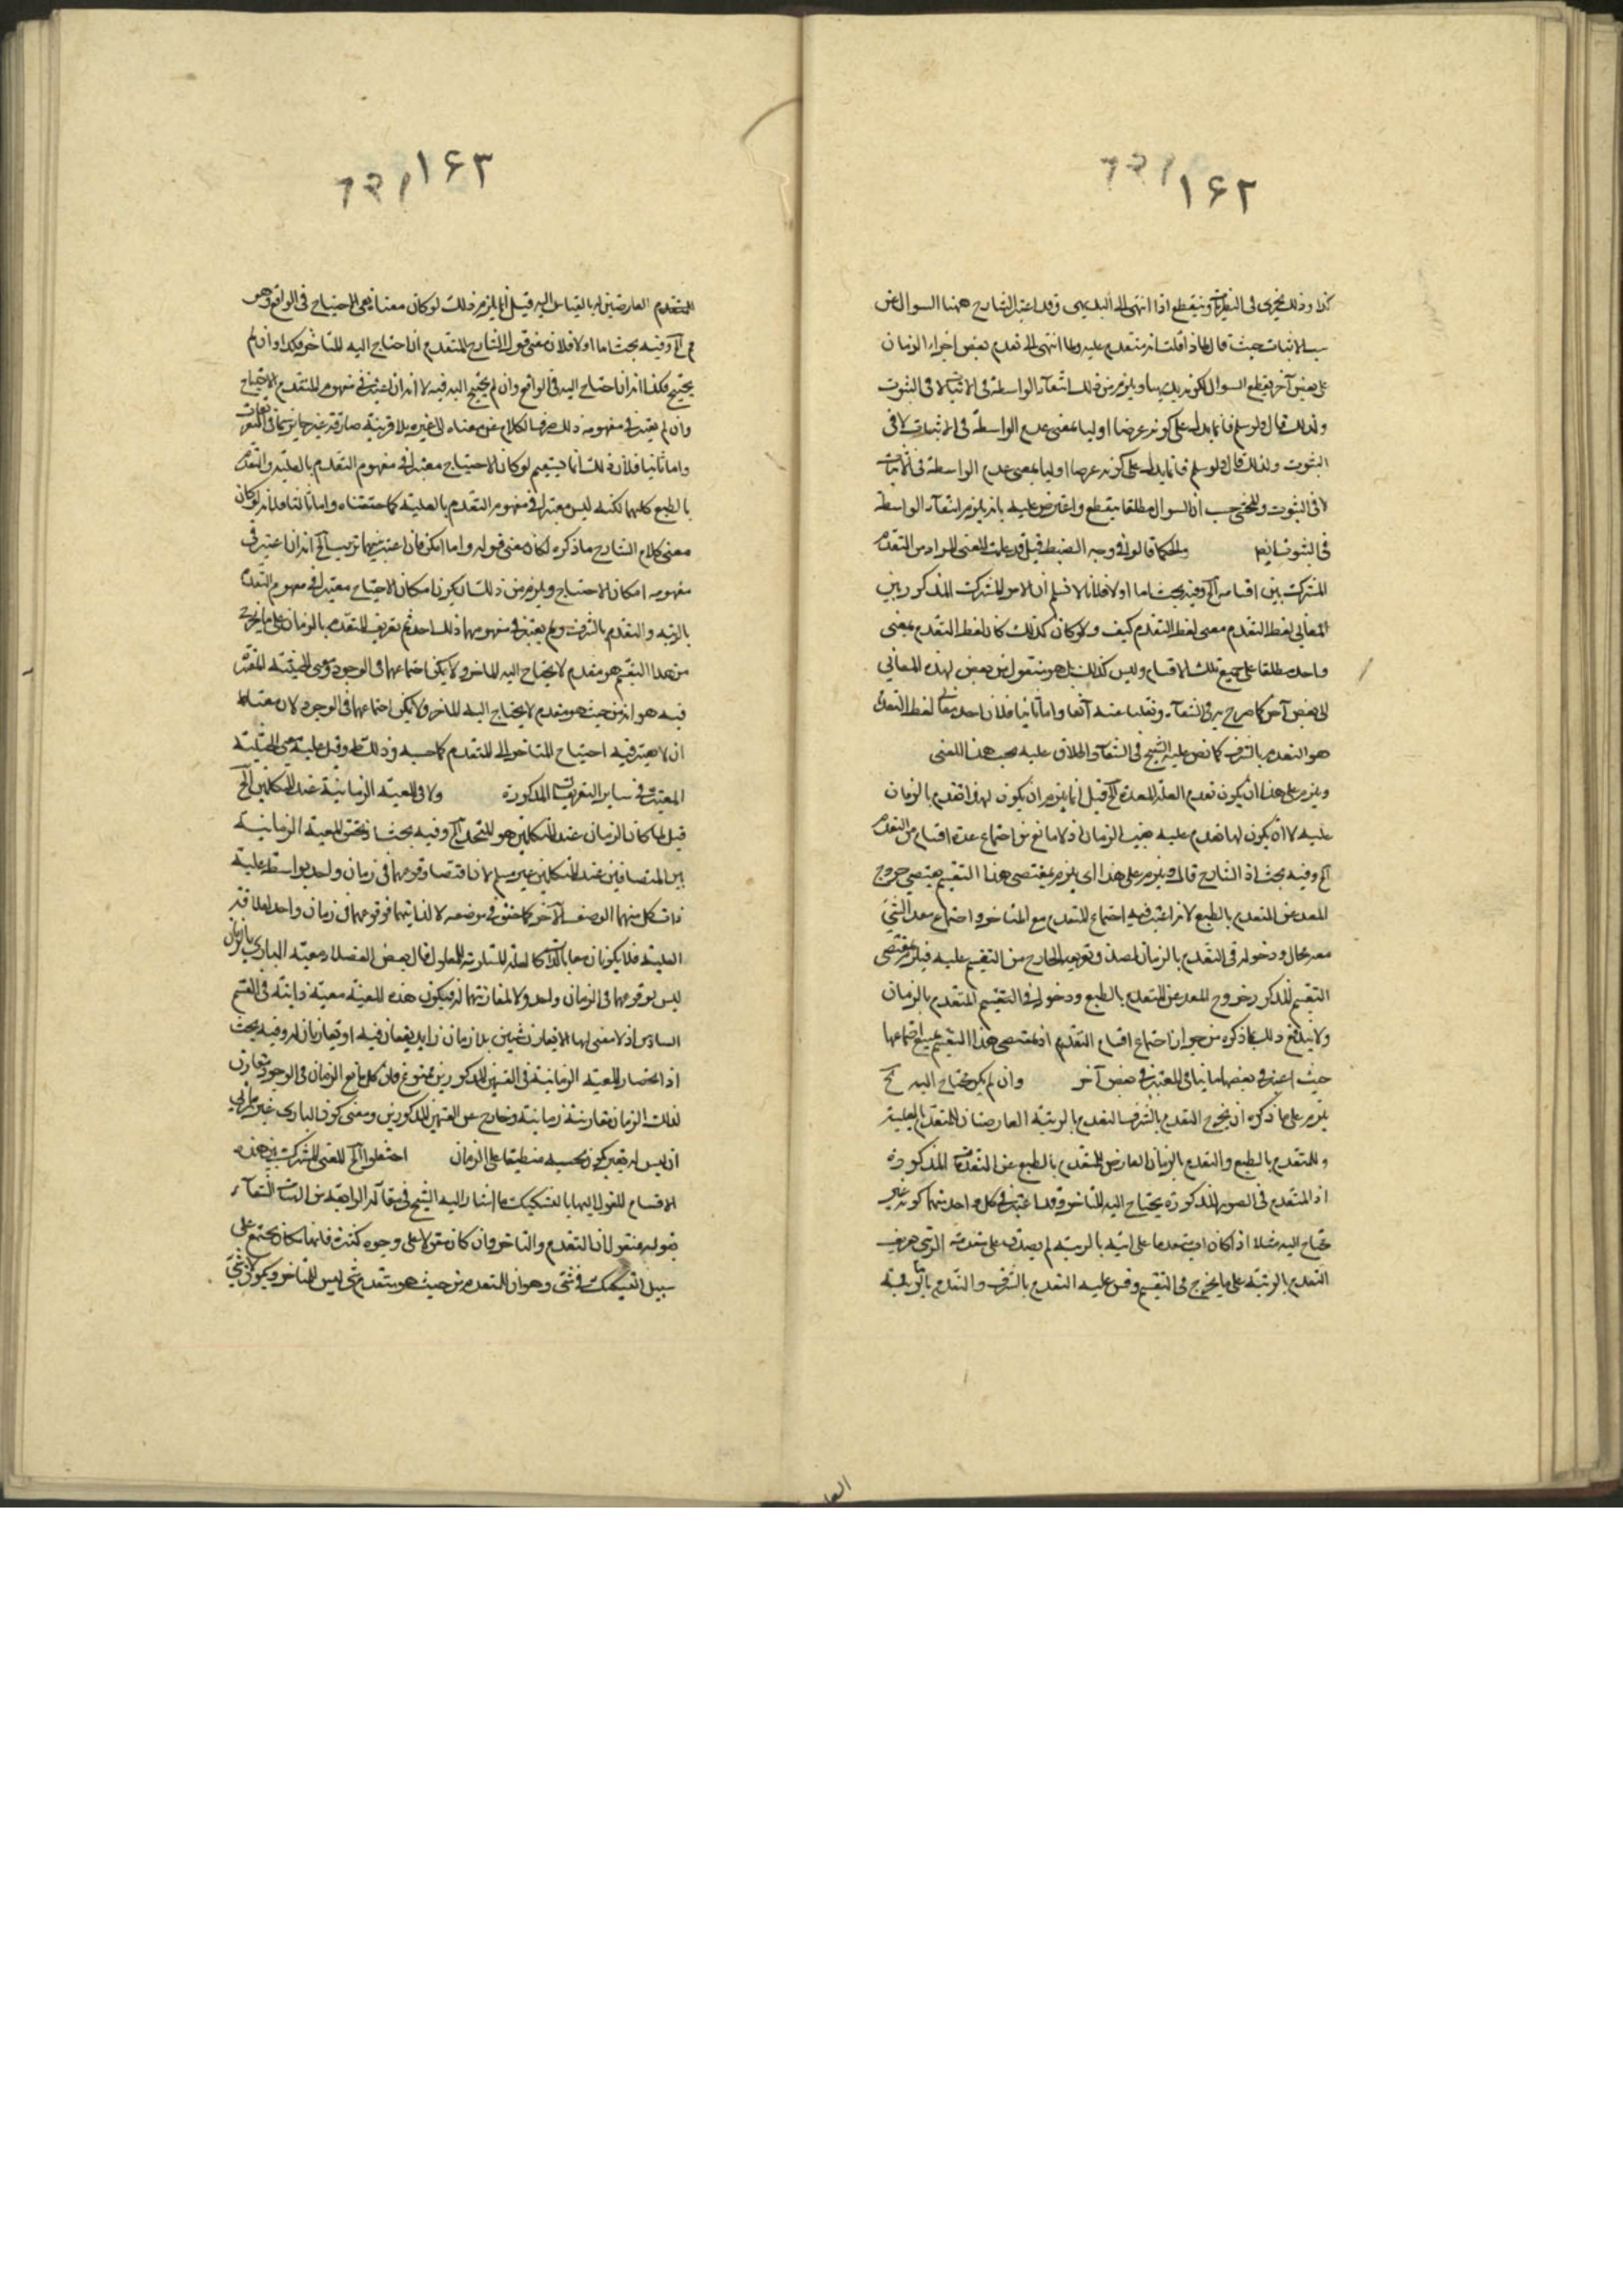 ١۶٢
كذا وذلك يجرى فى النظريات وينقطع اذا انتهى الى البديهى وقد اعتبر الشارح ههنا السوال عن
سبب الاثبات حيث قال لماذا قلت انه متقدم عليه ولما انتهى الى تقدم بعض اجزاء الزمان
على بعض آخر ينقطع السوال لكونه بديهيا ويلزم من ذلك انتفاء الواسطة فى الاثبات لا فى الثبوت
ولذلك قال ولو سلم فانما يدل على كونه عرضا اوليا بمعنى عدم الواسطة فى الاثبات لا فى
الثبوت ولذلك قال ولو سلم فانما يدل على كونه عرضا اوليا بمعنى عدم الواسطة فى الاثبات
لا فى الثبوت وللمحشى حسب ان السوال مطلقا ينقطع واعترض عليه بانه يلزم انتفاء الواسطة
فى الثبوت ايضا والحكما قالوا فى وجه الضبط قيل قد علمت المعنى المراد من التقدم
المشترك بين اقسامه الخ وفيه بحث اما اولا فلانا لا نسلم ان الامر المشترك المذكور بين
المعانى لفظ التقدم معنى لفظ التقدم كيف ولو كان كذلك كان لفظ التقدم بمعنى
واحد مطلقا على جميع تلك الاقسام وليس كذلك بل هو منقول من بعض لهذه المعانى
الى بعض آخر كما صرح به فى الشفاء ونقلنا عنه آنفا واما ثانيا فلان احد معانى لفظ التقدم
هو التقدم بالشرف كما نص عليه الشيخ فى الشفاء والاطلاق عليه بحسب هذا المعنى
ويلزم على هذا ان يكون تقدم العلة المعدة الخ قيل انما يلزم ان يكون لهذا تقدم بالزمان
عليه لا ان يكون لها تقدم عليه بحسب الزمان اذ لا مانع من اجتماع عدة اقسام من التقدم
الخ وفيه بحث اذ الشارح قال ويلزم على هذا اى يلزم بمقتضى هذا التقسيم بمقتضى خروج
المعد عن المتقدم بالطبع لانه اعتبر فيه اجتماع المتقدم مع المتاخر واجتماع معد الشئ
معه محال ودخوله فى التقدم بالزمان لصدق تعريف الخارج من التقسيم عليه فيلزم بمقتضى
التقسيم المذكور خروج المعد عن المتقدم بالطبع ودخوله فى التقسيم المتقدم بالزمان
ولا يندفع ذلك بما ذكره من جواز اجتماع اقسام التقدم اذ مقتضى هذا التقسيم يمنع اجتماعها
حيث اعتبر فى بعضها ما ينافى المعتبر فى بعض آخر وان لم يكن محتاج اليه الخ
يلزم على ما ذكره ان يخرج التقدم بالشرف والتقدم بالرتبة العارضان للمتقدم بالعلية
وللمتقدم بالطبع والتقدم بالزمان العارض للمتقدم بالطبع عن التقدمات المذكورة
اذ المتقدم فى الصور المذكورة يحتاج اليه المتاخر وقد اعتبر فى كل واحد منهما كونه غير
محتاج اليه مثلا اذا كان اب متقدما على ابنه بالرتبة لم يصدق على تقدمه الرتبى تعريف
التقدم بالرتبة على ما يخرج فى التقسيم وقس عليه التقدم بالشرف والتقدم بالرتبة
١۶٣
المتقدم العارضين له بالقياس اليه قيل انما يلزم ذلك لو كان معناه نفى الاحتياج فى الواقع وهو
مم الخ وفيه بحث اما اولا فلان معنى قول الشارح المتقدم ان احتاج اليه المتاخر فكذا وان لم
يحتج فكذا انه ان احتاج اليه فى الواقع وان لم يحتج اليه فيه لا انه ان اعتبر فى مفهوم المتقدم الاحتياج
وان لم يعتبر فى مفهومه ذلك صرف الكلام عن معناه الى غيره بلا قرينة صارفة غير جايز سيما فى التعريفات
واما ثانيا فلان ذلك انما يستقيم لو كان الاحتياج معتبرا فى مفهوم التقدم بالعلية والتقدم
بالطبع كليهما لكنه ليس معتبرا فى مفهوم التقدم بالعلية كما حققناه واما ثالثا فلانه لو كان
معنى كلام الشارح ما ذكره لكان معنى قوله واما امكن فان اعتبر بينهما ترتيب الخ انه ان اعتبر فى
مفهومه امكان الاحتياج ويلزم من ذلك ان يكون امكان الاحتياج معتبرا فى مفهوم التقدم
بالرتبة والتقدم بالشرف ولم يعتبر فى مفهومهما ذلك احد ثم تعريف المتقدم بالزمان على ما يخرج
من هذا التقسيم هو متقدم لا يحتاج اليه المتاخر ولا يمكن اجتماعهما فى الوجود ومعنى الحيثية المعتبرة
فيه هو انه من حيث هو متقدم لا يحتاج اليه المتاخر ولا يمكن اجتماعهما فى الوجود لان معناه
ان لا يعتبر فيه احتياج المتاخر الى المتقدم كما حسبه وذلك ظ وقس عليه معنى الحيثية
المعتبرة فى ساير التعريفات المذكورة ولا فى المعية الزمانية عند المتكلمين الخ
قيل لما كان الزمان عند المتكلمين هو المتجدد الخ وفيه بحث اذ تحقق المعية الزمانية
بين المتضايفين عند المتكلمين غير مسلم لان اقتضا وقوعهما فى زمان واحد بواسطة علية
ذات كل منهما الوصف الآخر كما حقق فى موضعه لا لذاتيهما فوقوعهما فى زمان واحد لعلاقة
العلية فلا يكونان معا بالذات كالعلة المساوية للمعلول قال بعض الفضلاء معية البارى بالزمان
ليس لوقوعهما فى الزمان واحد ولا لمقارنتهما له فيكون هذه المعية معية ذاتية فى القسم
السادس اذ لا معنى لها الا تقارن شيئين بلا زمان زايد يقعان فيه او يقارنان له وفيه بحث
اذ انحصار المعية الزمانية فى القسمين المذكورين ممنوع فان كل ما مع الزمان فى الوجود مقارن
لذلك الزمان مقارنة زمانية وخارج عن القسمين المذكورين ومعنى كون البارى غير زمانى
ان ليس له تغير يكون بحسبه منطبقا على الزمان اختلفوا الخ المعنى المشترك بين هذه
الاقسام المقول اليها بالتشكيك ما اشار اليه الشيخ فى مقالة الرابعة من الهيات الشفاء
بقوله فنقول ان التقدم والتاخر وان كان مقولا على وجوه كثيرة فانها تكاد تجتمع على
سبيل التشكيك فى شئ وهو ان للمتقدم من حيث هو متقدم شئ ليس للمتاخر ويكون لا شئ